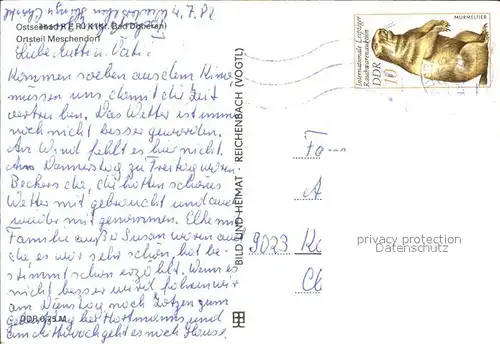 4.7.82
Ostseebad RERIK (Kr. Bad Doberan)
Ortsteil Meschendorf
Liebe Mutti u. Vati!
Kommen soeben aus dem Kino
müssen uns damit die Zeit
vertreiben. Das Wetter ist immer
noch nicht besser geworden.
An Wind fehlt es hier nicht.
Am Donnerstag zu Freitag waren
Beckers da, die hatten schönes
Wetter mit gebracht und auch
wieder mit genommen.
Familie außer Susan waren auch
da es war sehr schön, hat be-
stimmt schon erzählt. Wenn es
nicht besser wird fahren wir
am Dienstag noch zum
Geburtstag bei Hartmanns und
am Mittwoch geht es nach Hause.
DDR 0,25 M
BILD UND HEIMAT · REICHENBACH (VOGTL)
Internationale Leipziger
Rauchwarenauktion
DDR
10
MURMELTIER
Fa
A
9023
privacy protection
Datenschutz